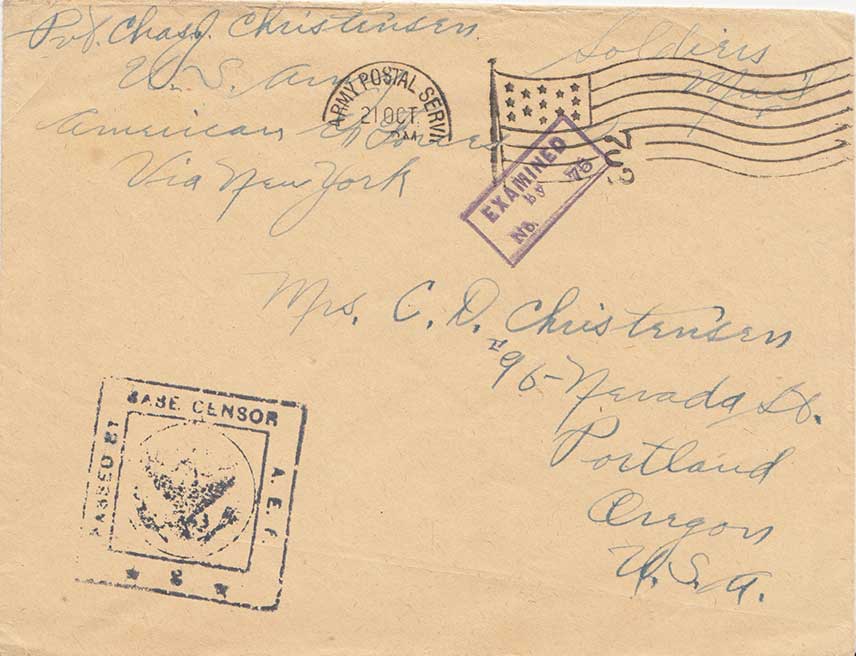 Pvt. Chas J. Christensen.
U. S. Army
American Ex Forces
Via New York
Soldiers
Mail
ARMY POSTAL SERVI
21 OCT.
EXAMINED
BY
No. 75
Mrs. C. D. Christensen
#96- Nevada St.
Portland
Oregon
U. S. A.
PASSED BY
BASE CENSOR
A. E. F.
* 2 *